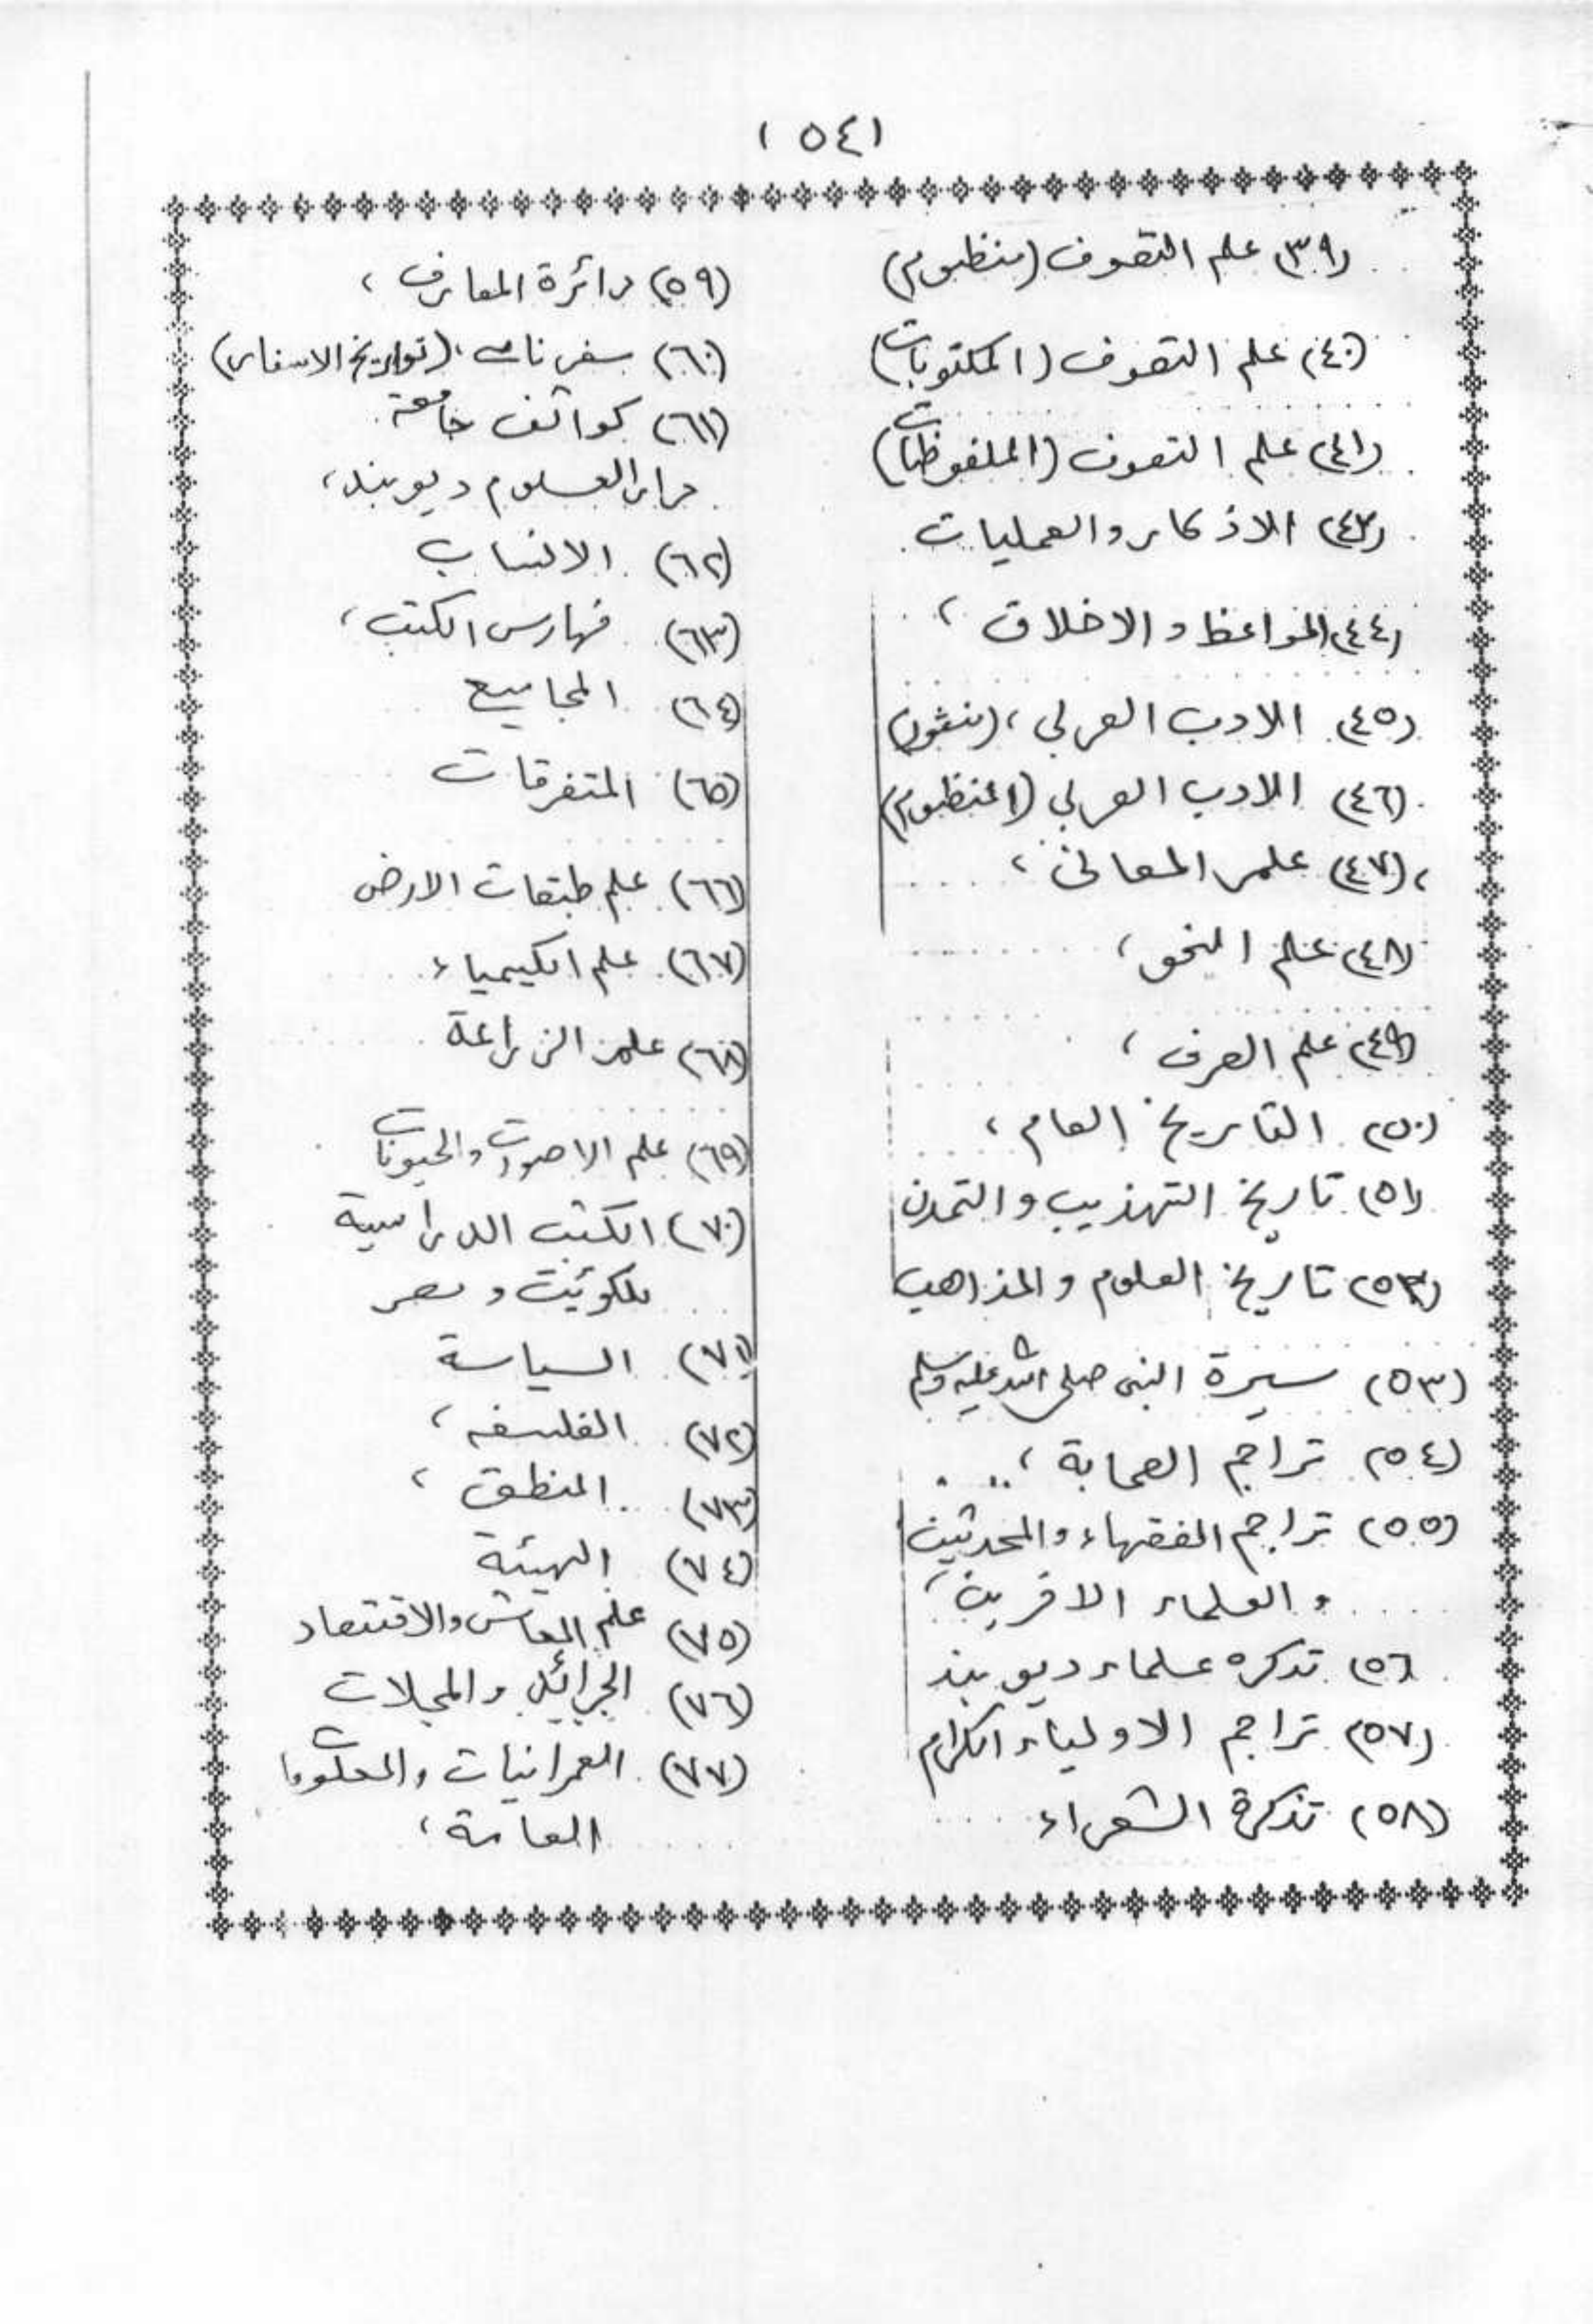 (٥٤١
(٣٩) علم التصوف (منظوم)
(٤٠) علم التصوف (المكتوبات)
(٤١) علم التصوف (الملفوظات)
(٤٢) الاذكار والعمليات
(٤٤) المواعظ والاخلاق ،
(٤٥) الادب العربي ، (منثور)
(٤٦) الادب العربي (المنظوم)
، (٤٧) علم المعانى ،
(٤٨) علم النحو ،
(٤٩) علم الصرف ،
(٥٠) التاريخ العام ،
(٥١) تاريخ التهذيب والتمدن
(٥٢) تاريخ العلوم والمذاهب
(٥٣) سيرة النبى صلى الله عليه وسلم
(٥٤) تراجم الصحابة ،
(٥٥) تراجم الفقهاء والمحدثين
والعلماء الاخرين ،
٥٦) تذكره علماء ديوبند
(٥٧) تراجم الاولياء الكرام
(٥٨) تذكرة الشعراء
(٥٩) دائرة المعارف ،
(٦٠) سفرنامه ، (تواريخ الاسفار)
(٦١) كوائف جامعة
دار العلوم ديوبند ،
(٦٢) الانساب
(٦٣) فهارس الكتب ،
(٦٤) المجاميع
(٦٥) المتفرقات
(٦٦) علم طبقات الارض
(٦٧) علم الكيمياء
(٦٨) علم الزراعة
(٦٩) علم الاصوات والحيونات
(٧٠) الكتب الدراسية
للكويت ومصر
(٧١) السياسة
(٧٢) الفلسفه ،
(٧٣) المنطق ،
(٧٤) الهيئية
(٧٥) علم المعاش والاقتصاد
(٧٦) الجرائد والمجلات
(٧٧) العمرانيات والمعلومات
العامة ،